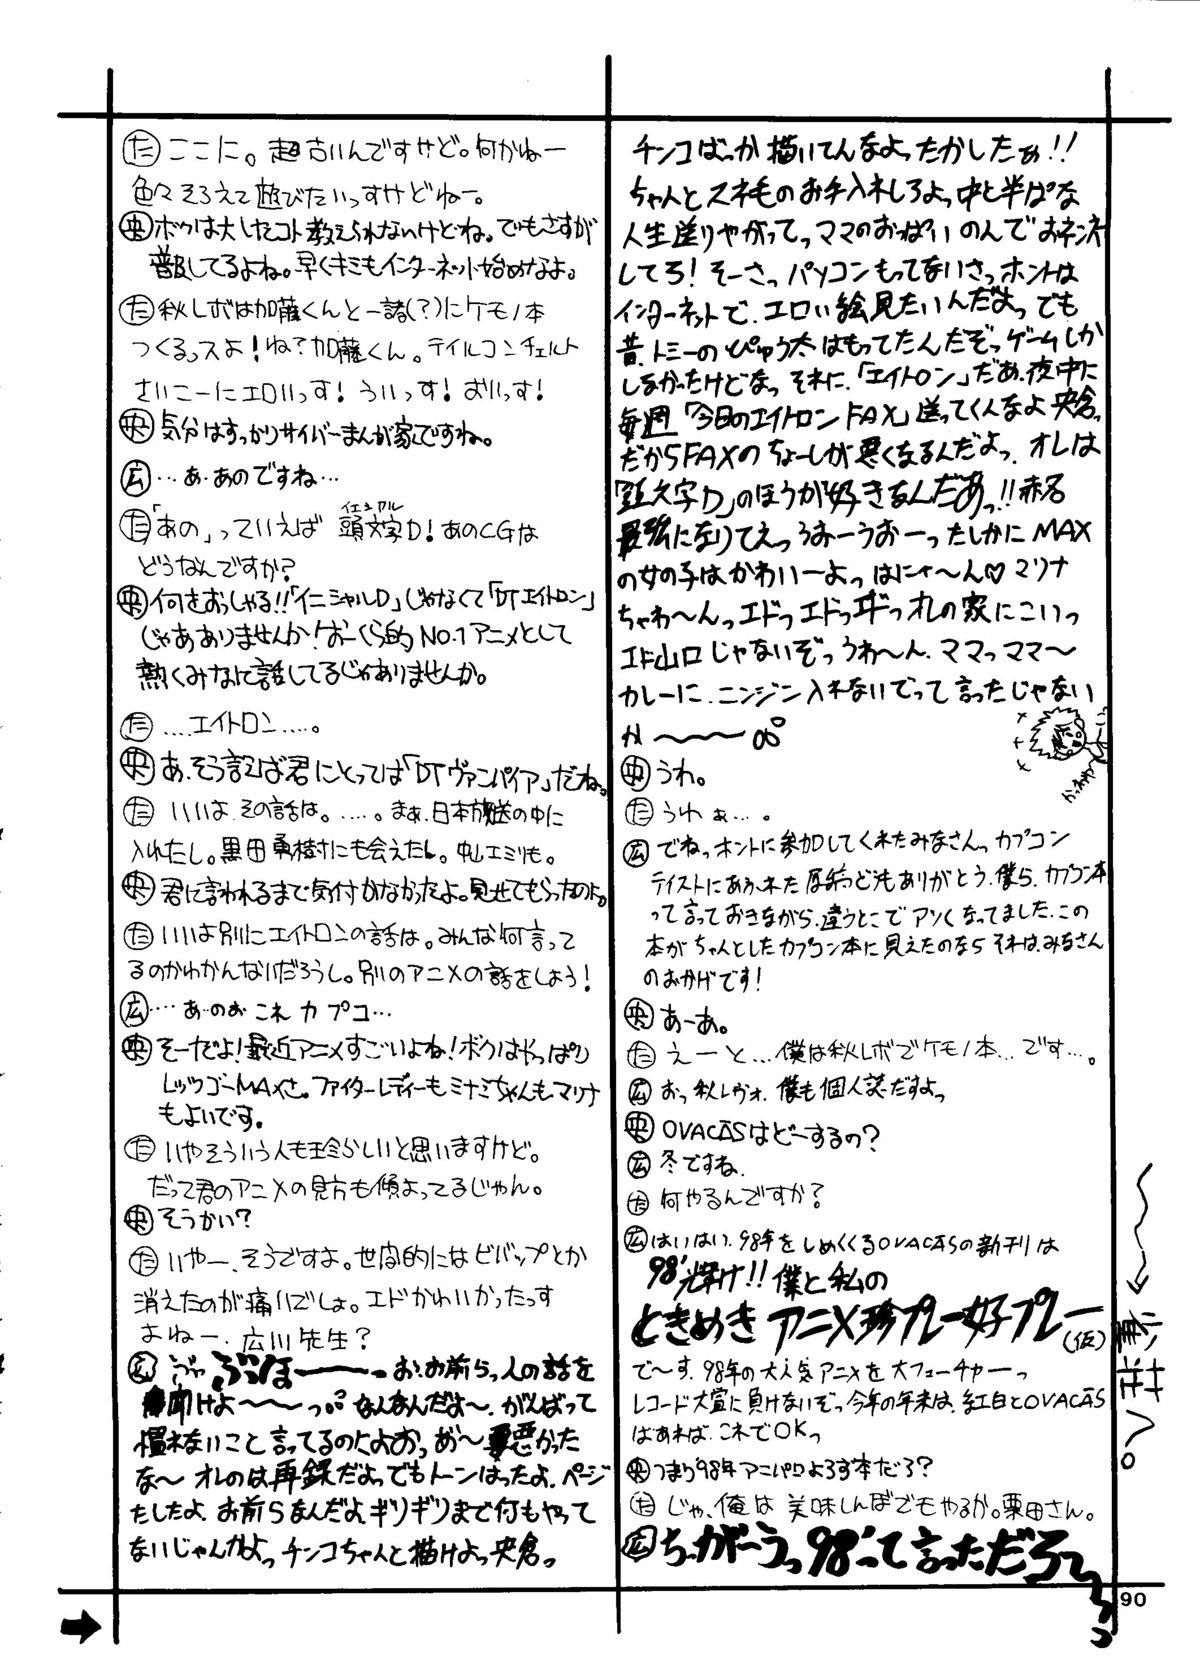 (た)ここに。超古いんですけど。何かねー
色々そろえて遊びたいっすけどねー。
(央)ボクは大したコト教えられないけどね。でもさすが
普及してるよね。早くキミもインターネット始めなよ。
(た)秋レボは加藤くんと一諸(?)にケモノ本
つくるっスよ!ね?加藤くん。テイルコンチェルト
さいこーにエロいっす!ういっす!おいっす!
(央)気分はすっかりサイバーまんが家ですね。
(広)…あ.あのですね…
(た)「あの」っていえば 頭文字D!あのCGは
イニシャル
どうなんですか?
(央)何をおっしゃる!!「イニシャルD」じゃなくて「DTエイトロン」
じゃあありませんか!おーくら的NO.1アニメとして
熱くみなに話してるじゃありませんか。
(た)….エイトロン…..。
(央)あ、そう言えば君にとっては「DTヴァンパイア」だね。
(た)いいよ.その話は。…..。まぁ.日本放送の中に
入れたし。黒田勇樹にも会えたし。中山エミリも。
(央)君に言われるまで気付かなかったよ。見せてもらったのに。
(た)いいよ別にエイトロンの話は。みんな何言って
るのかわかんないだろうし。別のアニメの話をしよう!
(広)…あ…のぉ これ カプコ…
(央)そーだよ!最近アニメすごいよね!ボクはやっぱり
レッツゴーMAXさ。ファイターレディーもミナミちゃんもマリナ
もよいです。
(た)いやそういう人も珍らしいと思いますけど。
だって君のアニメの見方も傾よってるじゃん。
(央)そうかい?
(た)いやー、そうですよ。世間的にはビバップとか
消えたのが痛いでしょ。エドかわいかったっす
よねー、広川先生?
(広) ぶほ————っ お、お前ら、人の話を
聞けよ〜〜〜っ。なんなんだよ〜、がんばって
慣れないこと言ってるのによおっ あ〜悪かった
な〜 オレのは再録だよっでもトーンはったよ.ページ
たしたよ.お前らなんだよギリギリまで何もやって
ないじゃんかよっ チンコちゃんと描けよっ央倉っ
チンコばっか描いてんなよったかしたぁ!!
ちゃんとスネ毛のお手入れしろよっ中と半ぱな
人生送りやがってっママのおっぱいのんでおネンネ
してろ!そーさっパソコンもってないさっホントは
インターネットで、エロい絵見たいんだよっでも
昔、トミーのぴゅう太はもってたんだぞっゲームしか
しなかったけどなっ それに、「エイトロン」だあ、夜中に
毎週「今日のエイトロンFAX」送ってくんなよ央倉っ
だからFAXのちょーしが悪くなるんだよっ オレは
「頭文字D」のほうが好きなんだあっ!!赤名
最強になりてえっうおーうおーったしかにMAX
の女の子はかわいーよっはにゃ〜ん♡マリナ
ちゃわ〜んっエドっエドっエドっオレの家にこいっ
エド山口じゃないぞっうわ〜ん、ママっママ〜
カレーに.ニンジン入れないでって言ったじゃない
か〜〜〜
(央)うわ。
(た)うわぁ…。
(広)でねっホントに参加してくれたみなさんっカプコン
テイストにあふれた原稿っどもありがとう.僕ら.カプコン本
って言っておきながら、違うとこでアツくなってました.この
本がちゃんとしたカプコン本に見えたのなら それは.みなさん
のおかげです!
(央)あーあ。
(た)えーと…僕は秋レボでケモノ本…です…。
(広)おっ秋レヴォ.僕も個人誌だすよっ
(央)OVACASはどーするの?
(広)冬ですね.
(た)何やるんですか?
(広)はいはい.98年をしめくくるOVACASの新刊は
98'輝け!!僕と私の
ときめきアニメ珍プレー好プレー(仮)
で〜す.98年の大人気アニメを大フューチャーっ
レコード大賞に負けないぞっ今年の年末は、紅白とOVACAS
はあれば.これでOKっ
(央)つまり98年アニパロよろず本だろ?
(た)じゃ、俺は 美味しんぼでもやるか。栗田さん。
(広)ちーがーうっ98'って言っただろーっ
90